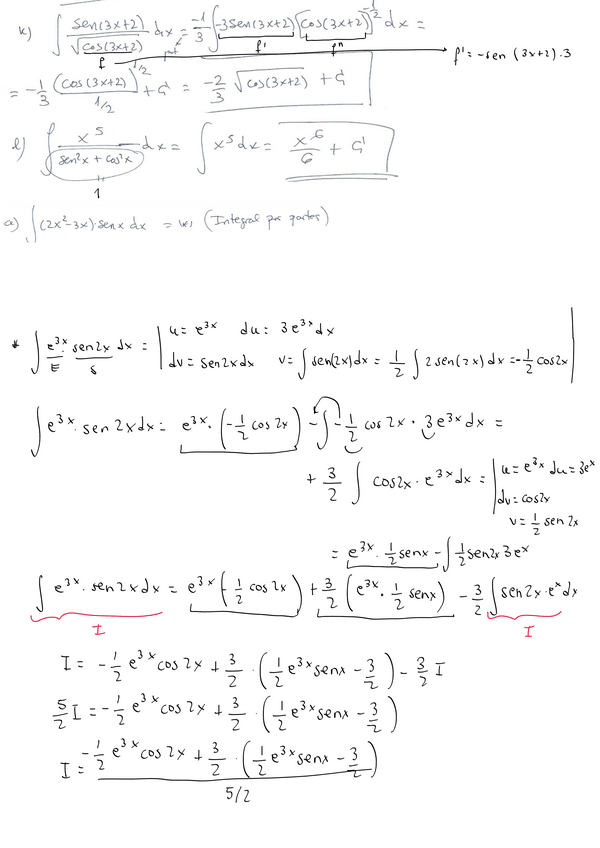 k) ∫ sen(3x+2)/√cos(3x+2) dx = -1/3 ∫ -3sen(3x+2) (cos(3x+2))^(-1/2) dx =
f f' fⁿ f' = -sen (3x+2)·3
= -1/3 (cos(3x+2))^(1/2)/(1/2) + C = -2/3 √cos(3x+2) + C
l) ∫ x^5/(sen²x + cos²x) dx = ∫ x^5 dx = x^6/6 + C
1
a) ∫(2x²-3x)·senx dx = (Integral por partes)
* ∫ e^(3x)·sen2x dx = | u = e^(3x) du = 3e^(3x) dx
E S
dv = sen2xdx v = ∫ sen(2x)dx = 1/2 ∫ 2sen(2x)dx = -1/2 cos2x |
∫ e^(3x)·sen 2xdx = e^(3x)·(-1/2 cos 2x) - ∫ -1/2 cos 2x · 3e^(3x) dx =
+ 3/2 ∫ cos2x·e^(3x) dx = | u = e^(3x) du = 3e^x
dv = cos2x
v = 1/2 sen 2x
= e^(3x)·1/2 senx - ∫ 1/2 sen2x 3e^x
∫ e^(3x)·sen 2xdx = e^(3x)(-1/2 cos 2x) + 3/2 (e^(3x)·1/2 senx) - 3/2 ∫ sen2x·e^x dx
I I
I = -1/2 e^(3x) cos 2x + 3/2 · (1/2 e^(3x) senx - 3/2) - 3/2 I
5/2 I = -1/2 e^(3x) cos 2x + 3/2 · (1/2 e^(3x) senx - 3/2)
I = -1/2 e^(3x) cos 2x + 3/2 · (1/2 e^(3x) senx - 3/2)
5/2